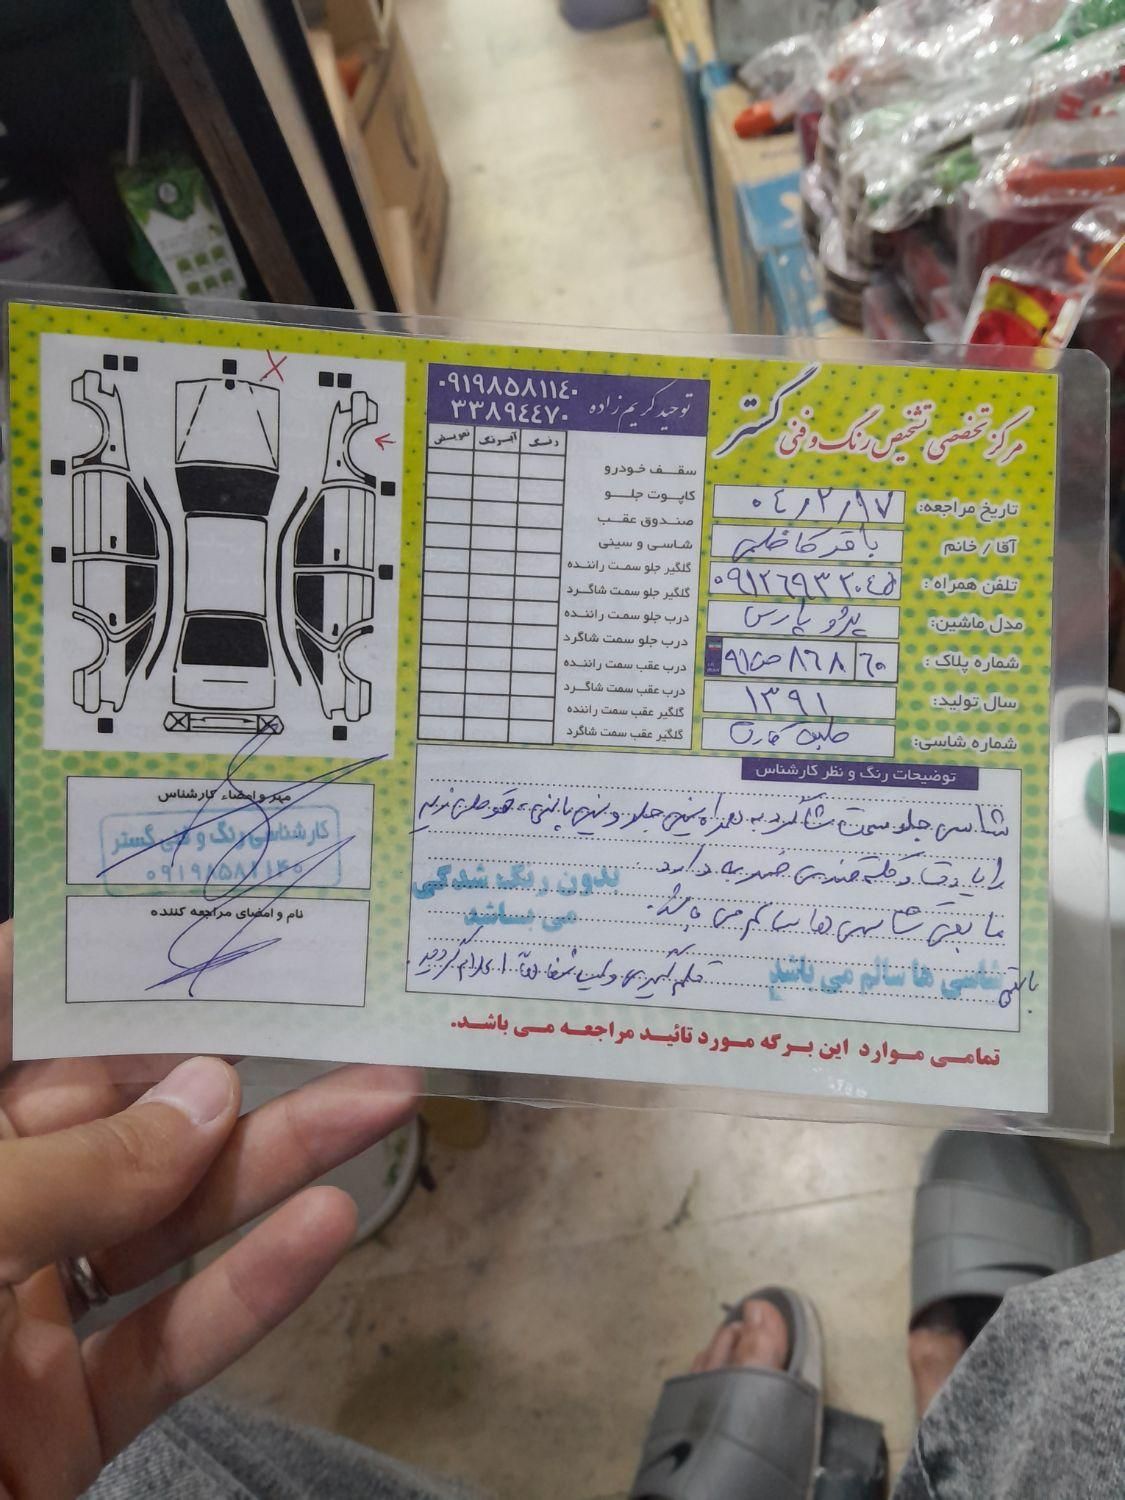 مرکز تخصصی تشخیص رنگ و فنی گستر
توحید کریم زاده ۰۹۱۹۸۵۸۱۱۴۰
۳۳۸۹۴۴۷۰
رنگ آبرنگ تعویض
سقف خودرو
کاپوت جلو
صندوق عقب
شاسی و سینی
گلگیر جلو سمت راننده
گلگیر جلو سمت شاگرد
درب جلو سمت راننده
درب جلو سمت شاگرد
درب عقب سمت راننده
درب عقب سمت شاگرد
گلگیر عقب سمت راننده
گلگیر عقب سمت شاگرد
تاریخ مراجعه: ۰۴/۲/۱۷
آقا / خانم باقر کاظمی
تلفن همراه: ۰۹۱۲۶۹۳۲۰۴۵
مدل ماشین: پژو پارس
شماره پلاک: ۶۰ ۸۶۸ ص ۹۱
سال تولید: ۱۳۹۱
شماره شاسی: طبق کارت
توضیحات رنگ و نظر کارشناس
شاسی جلو سمت شاگرد به همراه سینی جلو و سینی پائینی
ضربه دارد.
بدون رنگ شدگی
می باشد
مابقی شاسی ها سالم می باشد.
شاسی ها سالم می باشد
قلم گیری و لیسه شفاهاً اعلام گردید.
مهر و امضاء کارشناس
کارشناسی رنگ و فنی گستر
۰۹۱۹۸۵۸۱۱۴۰
نام و امضای مراجعه کننده
تمامی موارد این برگه مورد تائید مراجعه می باشد.